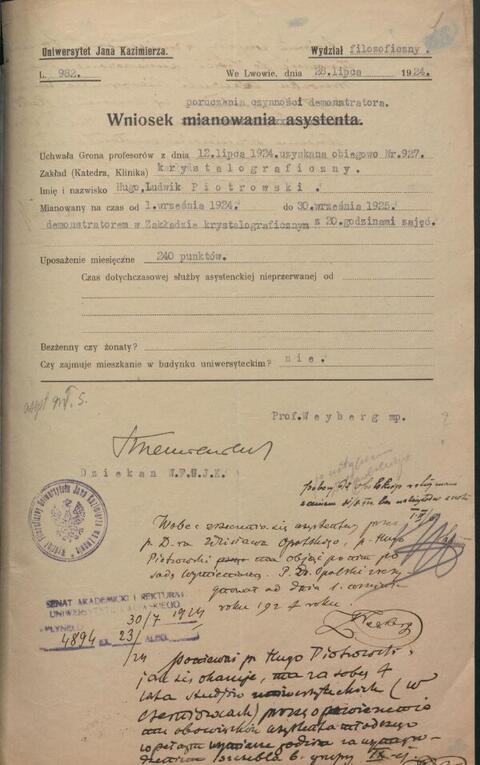 Uniwersytet Jana Kazimierza.
Wydział filozoficzny.
L. 982.
We Lwowie, dnia 28 lipca 1924.
poruczenia czynności demonstratora.
Wniosek mianowania asystenta.
Uchwała Grona profesorów z dnia 12.lipca 1924.uzyskana obiegowo Nr.927.
Zakład (Katedra, Klinika) krystalograficzny.
Imię i nazwisko Hugo,Ludwik Piotrowski.
Mianowany na czas od 1.września 1924. do 30.września 1925.
demonstratorem w Zakładzie krystalograficznym z 20.godzinami zajęć.
Uposażenie miesięczne 240 punktów.
Czas dotychczasowej służby asystenckiej nieprzerwanej od
Bezżenny czy żonaty?
Czy zajmuje mieszkanie w budynku uniwersyteckim? nie.
Prof.Weyberg mp.
Dziekan W.F.U.J.K.
Wobec zrzeczenia się asystentury przez
p. D-ra Zdzisława Opolskiego, p. Hugo
Piotrowski ma objąć po nim po
sadę wymienioną. P. Dr. Opolski
od dnia 1. września
roku 1924 roku.
Weyberg
SENAT AKADEMICKI I REKTORAT
30/7 1924
4894 23/
/24
ponieważ p. Hugo Piotrowski,
jak się okazuje, ma za sobą 4
lata studjów uniwersyteckich (w
Czerniowcach) proszę o powierzenie
mu obowiązków asystenta młodszego
w pełnym wymiarze godzin za
szczebla b. grupy IX-ej.